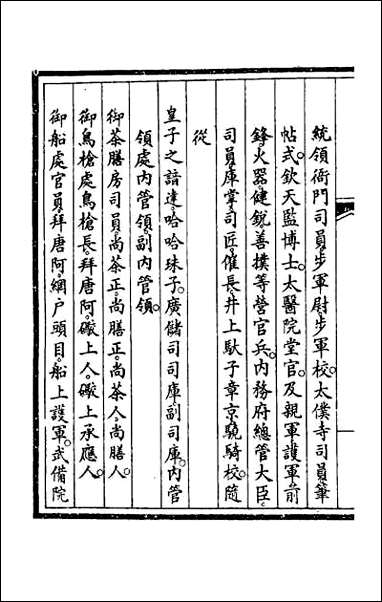 統領衙門司員步軍尉步軍校太僕寺司員筆
帖式欽天監博士太醫院堂官及親軍護軍前
鋒火器健銳善撲等營官兵內務府總管大臣
司員庫掌司匠催長井上馱子章京驍騎校隨
從
皇子之諳達哈哈珠子廣儲司司庫副司庫內管
領處內管領副內管領
御茶膳房司員尚茶正尚膳正尚茶人尚膳人
御鳥槍處鳥槍長拜唐阿礮上人礮上承應人
御船處官員拜唐阿網戶頭目船上護軍武備院